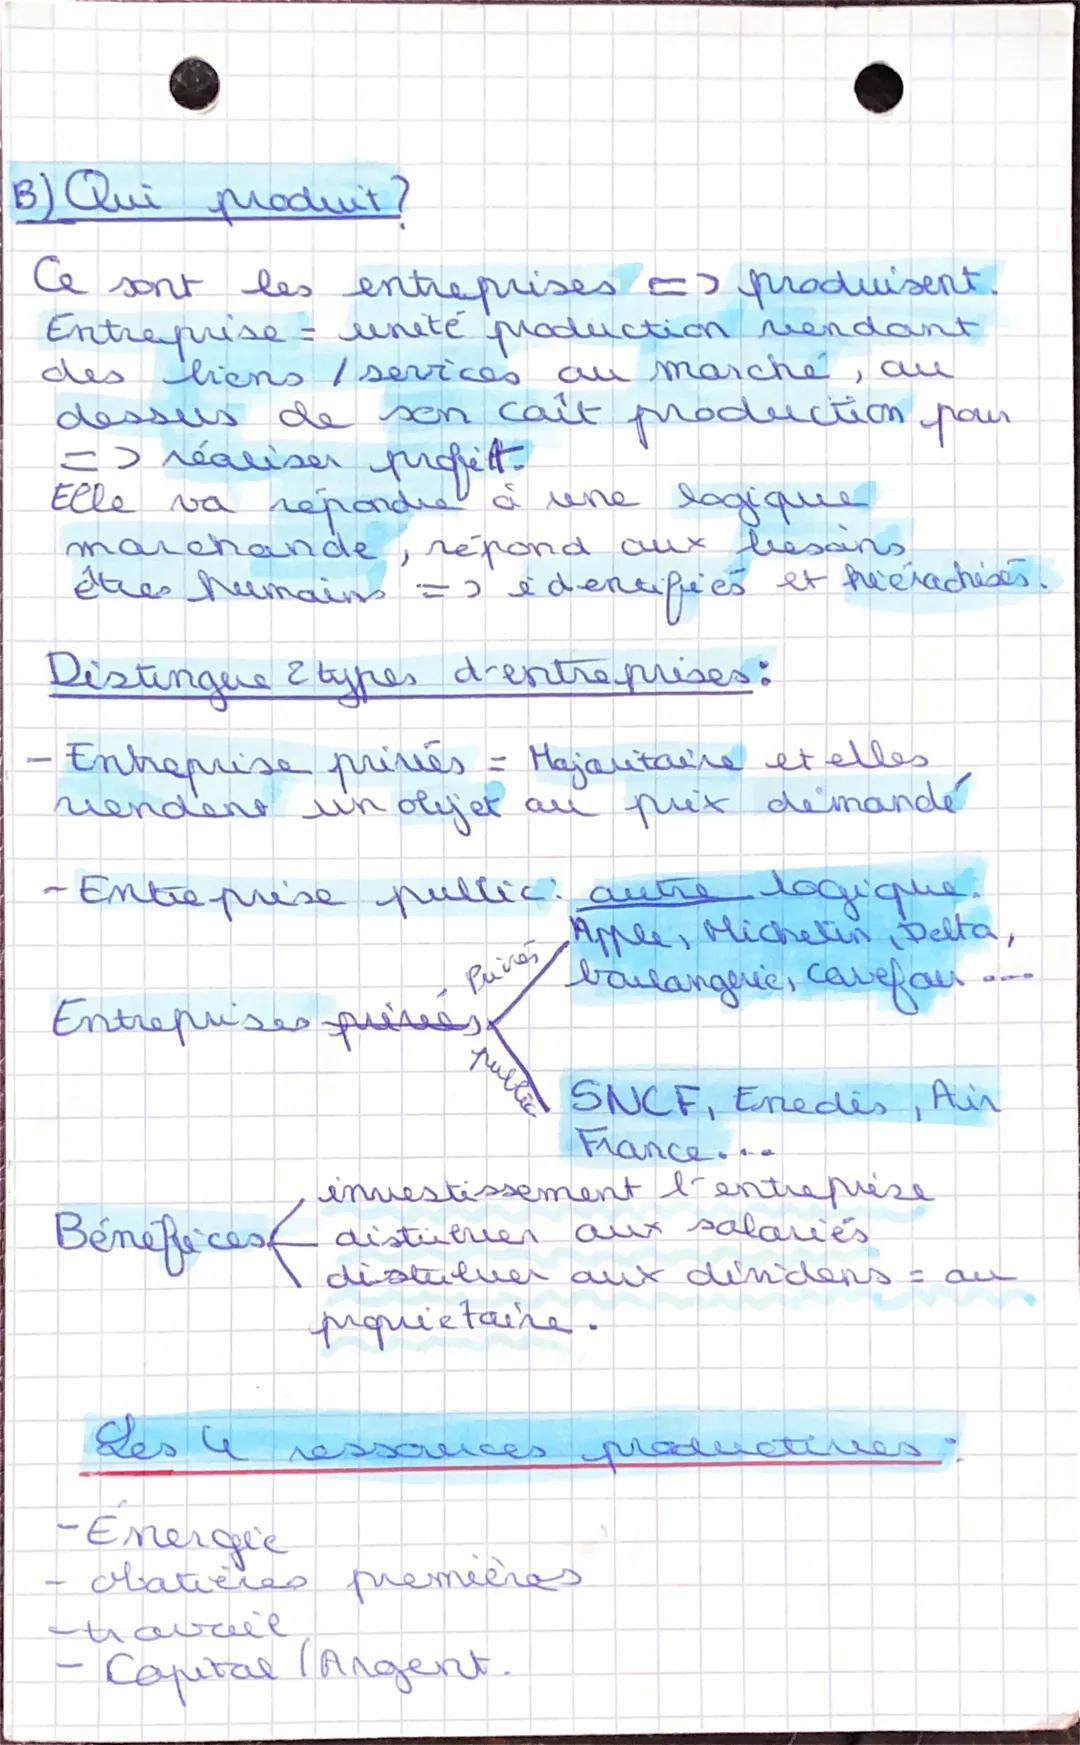 B) Qui produit?
Ce sont les entreprises => produisent.
Entreprise = unité production vendant
des biens / services au marché, au
dessus de son coût production pour
=> réaliser profit.
Elle va répondre à une logique
marchande, répond aux besoins
êtres humains => identifiés et hiérachisés.
Distingue 2 types d'entreprises:
- Entreprise privés = Majoritaire et elles
vendent un objet au prix demandé
- Entreprise public: autre logique.
Entreprises privés
Privés
Apple, Michelin, Delta,
boulangerie, Carefour ....
Public
SNCF, Enedis, Air
France...
Bénéfices
investissement l'entreprise
distribuer aux salariés
distribuer aux dividens = au
propriétaire.
Les 4 ressources productives:
- Énergie
- Matières premières
- travail
- Capital / Argent.